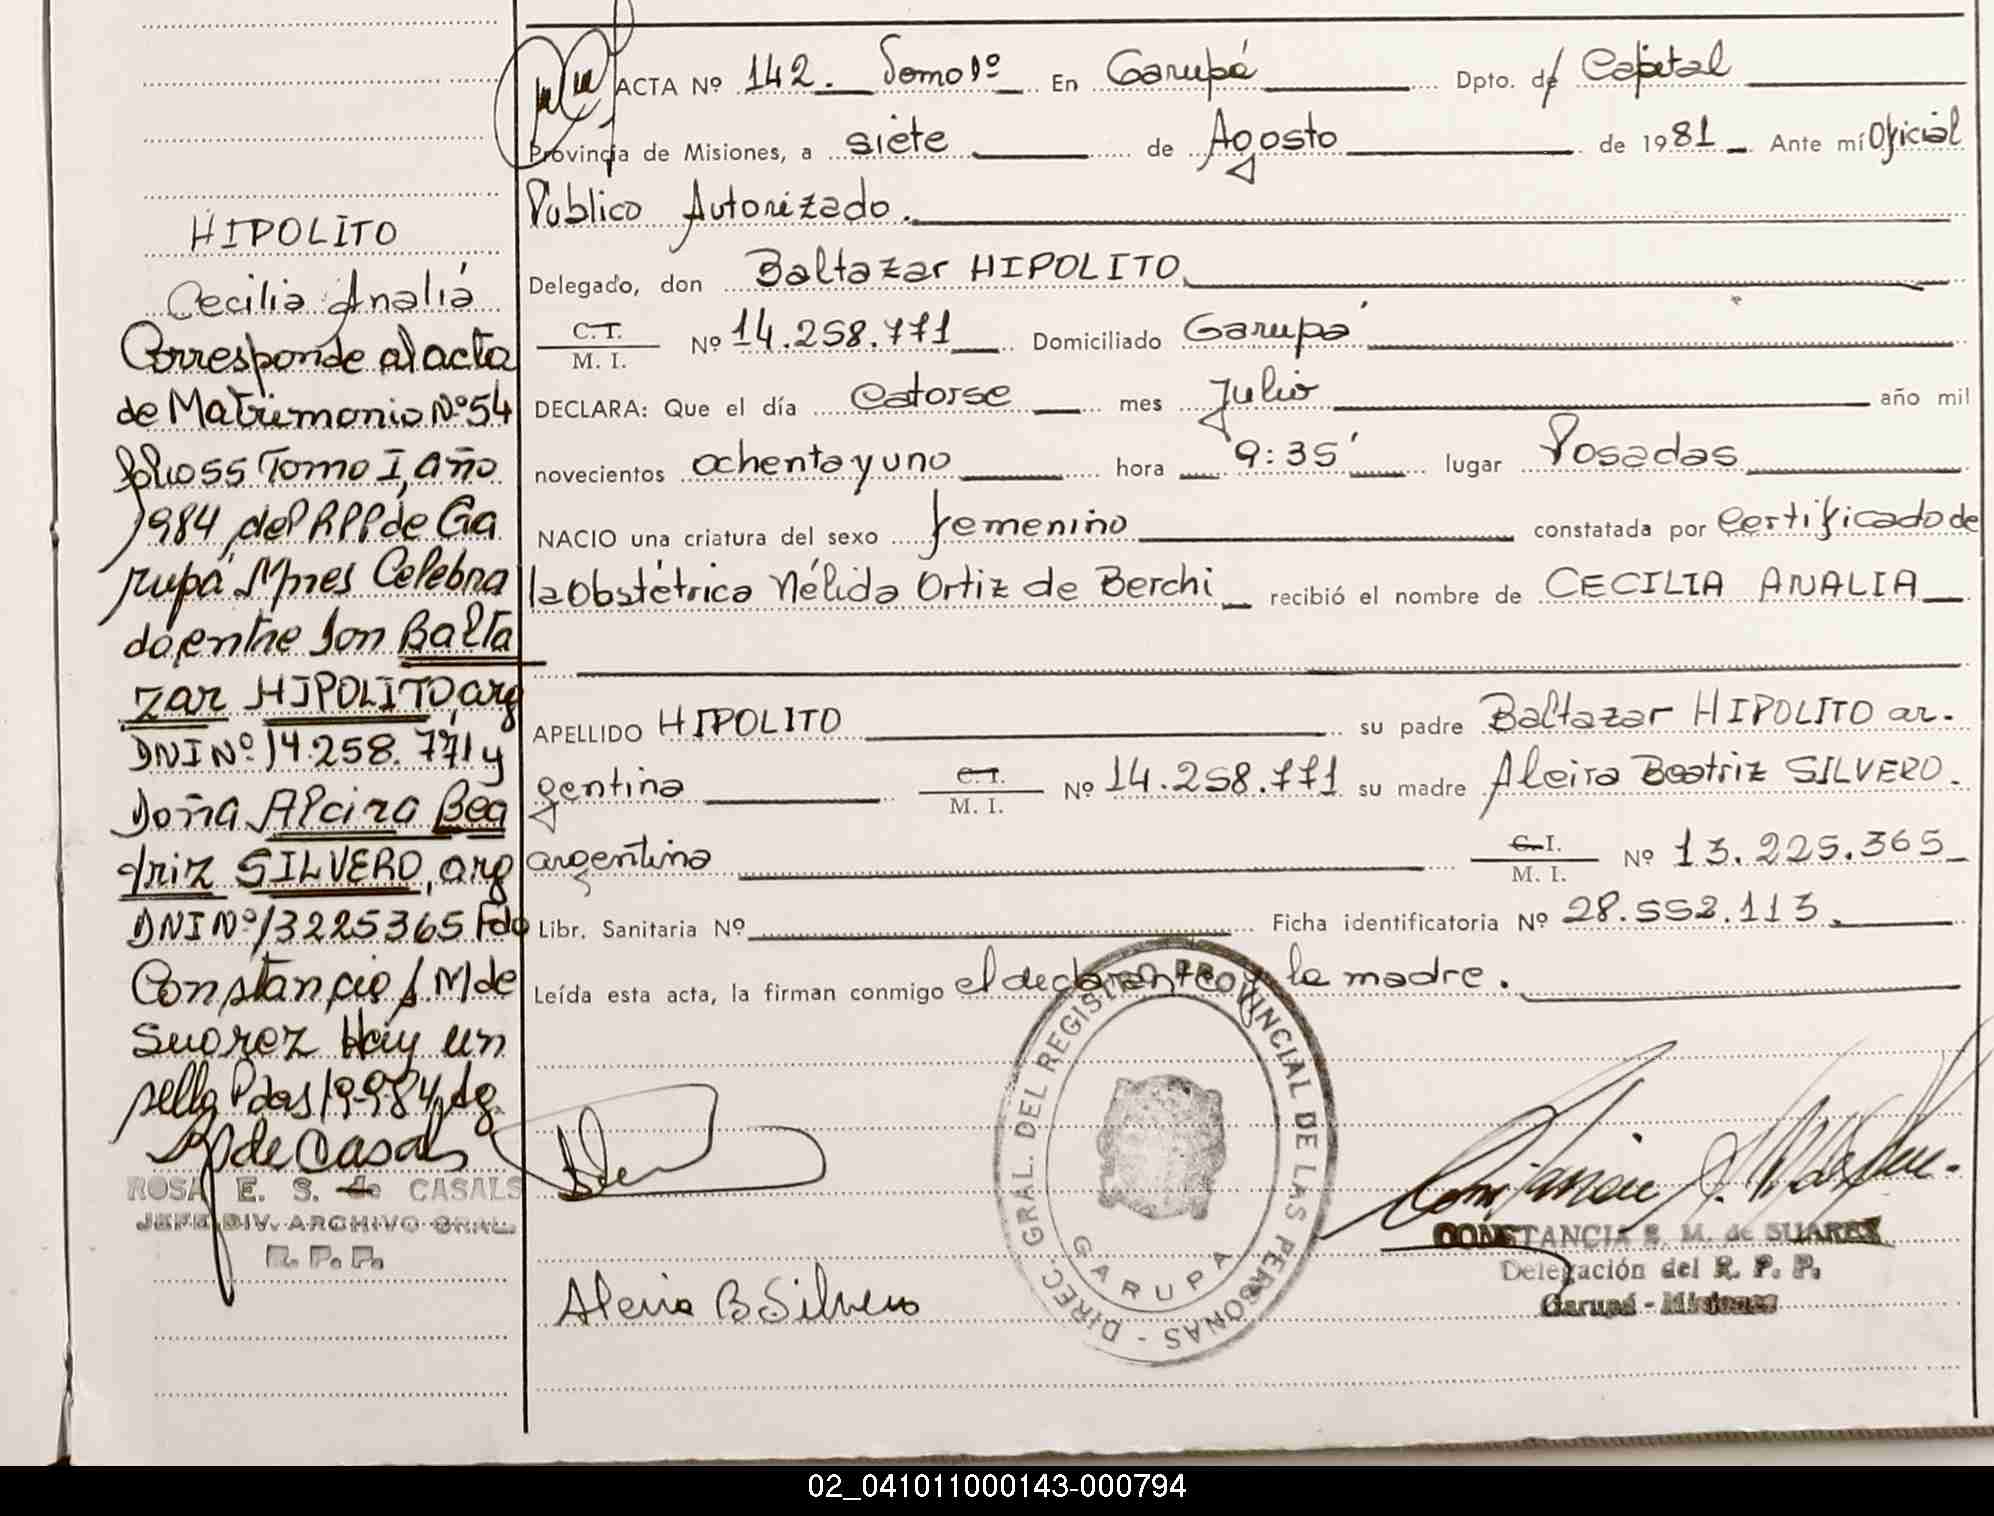 HIPOLITO
Cecilia Analiá
Corresponde al acta
de Matrimonio Nº 54
folio 55 Tomo I, año
1984 del RPP de Ga
rupá Mnes Celebra
do entre Don Balta
zar HIPOLITO, arg
DNI Nº 14.258.771 y
Doña Alcira Bea
triz SILVERO, arg
DNI Nº 13225365 Fdo
Constancio S. M de
Suarez Hay un
sello Pdas 19-9-84
de Casals
ROSA E. S. de CASALS
JEFE DIV. ARCHIVO GRAL.
R. P. P.
ACTA Nº 142. Tomo 1º En Garupá Dpto. de Capital
Provincia de Misiones, a siete de Agosto de 1981 Ante mí Oficial
Publico Autorizado.
Delegado, don Baltazar HIPOLITO
C.I. M. I. Nº 14.258.771 Domiciliado Garupá
DECLARA: Que el día Catorse mes Julio año mil
novecientos ochenta y uno hora 9:35' lugar Posadas
NACIO una criatura del sexo femenino constatada por Certificado de
la Obstétrica Nélida Ortiz de Berchi recibió el nombre de CECILIA ANALIA
APELLIDO HIPOLITO su padre Baltazar HIPOLITO ar-
gentino C.I. M. I. Nº 14.258.771 su madre Alcira Beatriz SILVERO.
argentina C.I. M. I. Nº 13.225.365
Libr. Sanitaria Nº Ficha identificatoria Nº 28.552.113
Leída esta acta, la firman conmigo el declarante y la madre.
DIREC. GRAL. DEL REGISTRO PROVINCIAL DE LAS PERSONAS -
GARUPA
Alcira B Silvero
CONSTANCIA S. M. de SUAREZ
Delegación del R. P. P.
Garupá - Misiones
02_041011000143-000794